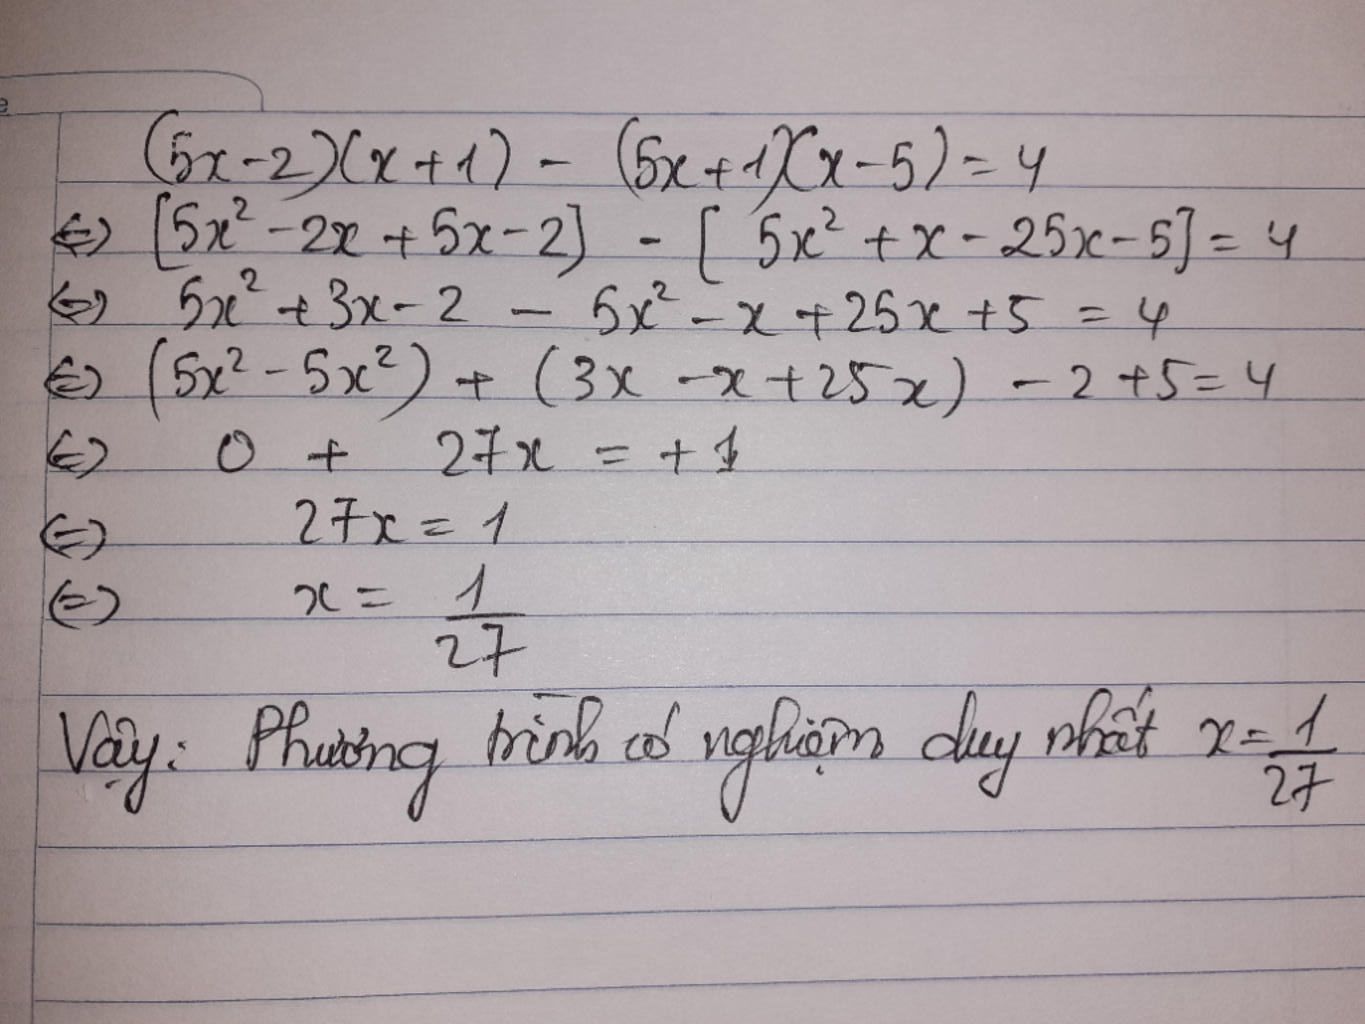 e
(5x-2)(x+1) - (5x+1)(x-5) = 4
⇔ [5x² - 2x + 5x - 2] - [5x² + x - 25x - 5] = 4
⇔ 5x² + 3x - 2 - 5x² - x + 25x + 5 = 4
⇔ (5x² - 5x²) + (3x - x + 25x) - 2 + 5 = 4
⇔ 0 + 27x = +1
⇔ 27x = 1
⇔ x = 1/27
Vậy: Phương trình có nghiệm duy nhất x = 1/27